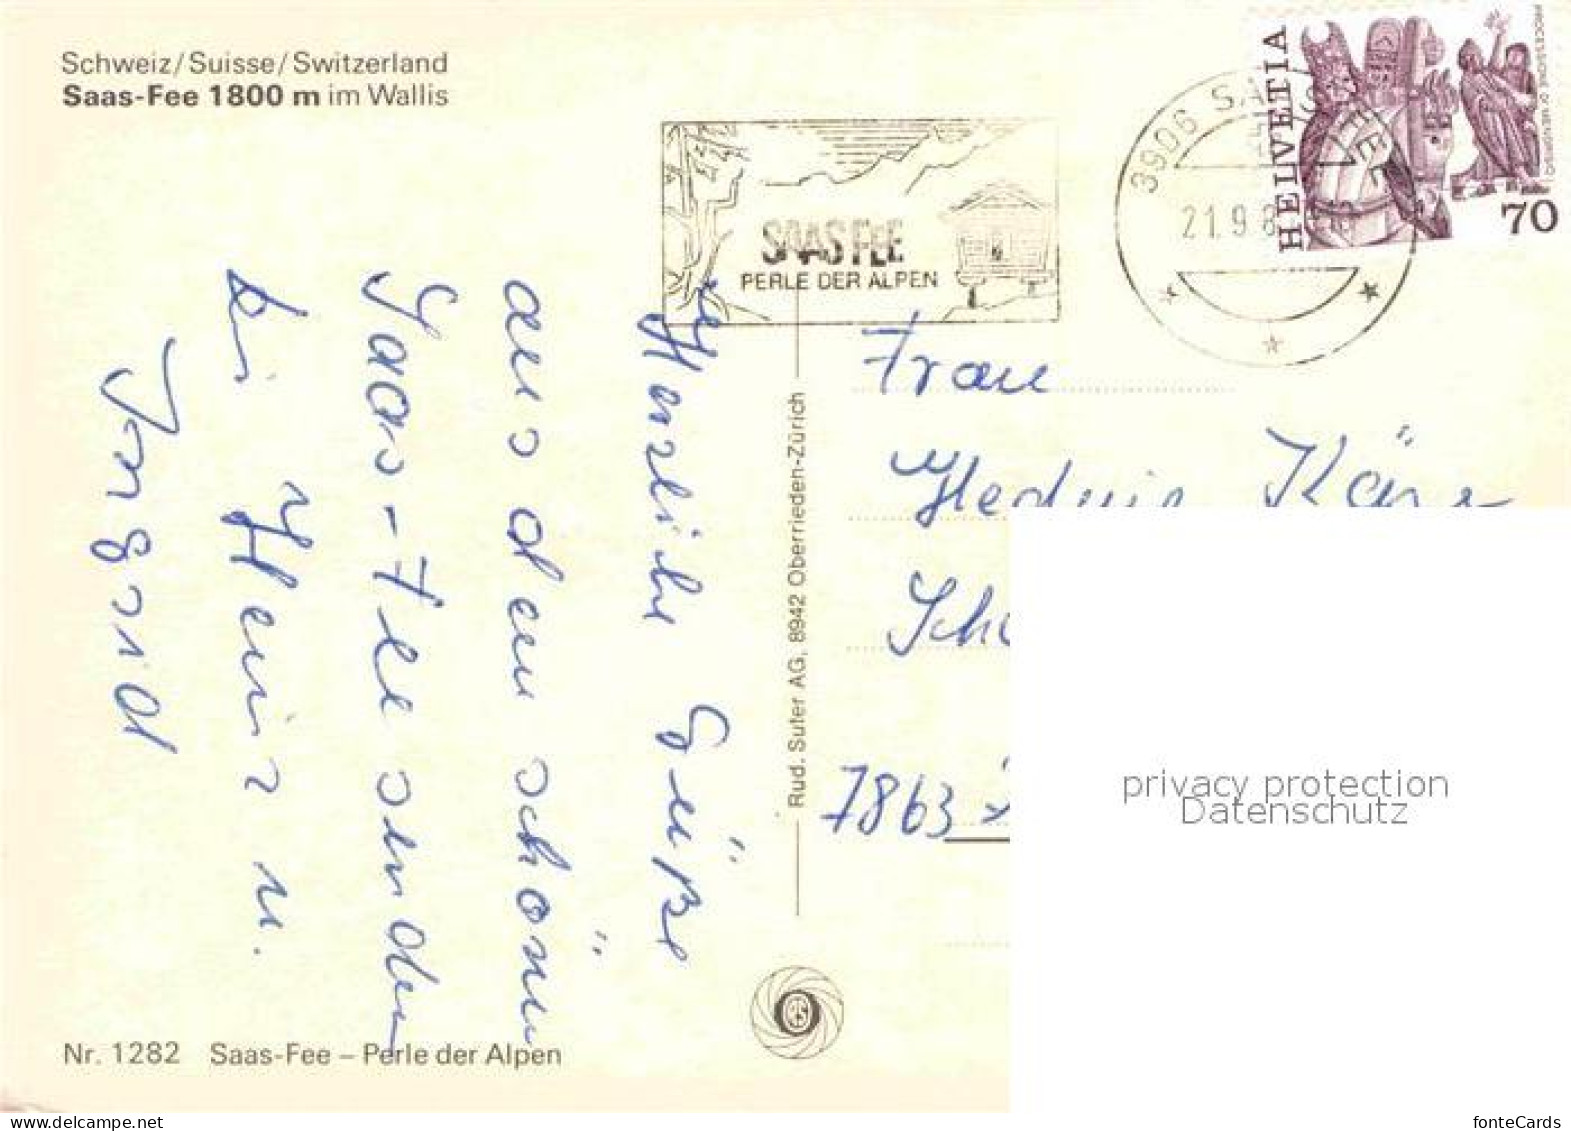 Schweiz/Suisse/Switzerland
Saas-Fee 1800 m im Wallis
SAAS FEE
PERLE DER ALPEN
3906 SAAS-FEE
21.9.8
HELVETIA
PROCESSIONE DI MENDRISIO
70
Herzliche Grüße
aus dem schönen
Saas-Fee senden
Heinz u.
Ingrid
Rud. Suter AG, 8942 Oberrieden-Zürich
Frau
Hedwig
Sch
7863
privacy protection
Datenschutz
Nr. 1282 Saas-Fee – Perle der Alpen
www.delcampe.net
fonteCards